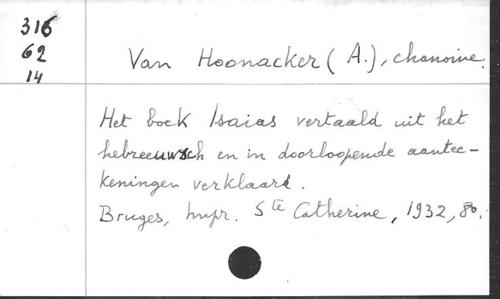 316
62
14
Van Hoonacker (A.), chanoine.
Het boek Isaias vertaald uit het
hebreeuwsch en in doorloopende aantee-
keningen verklaard.
Bruges, Impr. Ste Catherine, 1932, 8o.